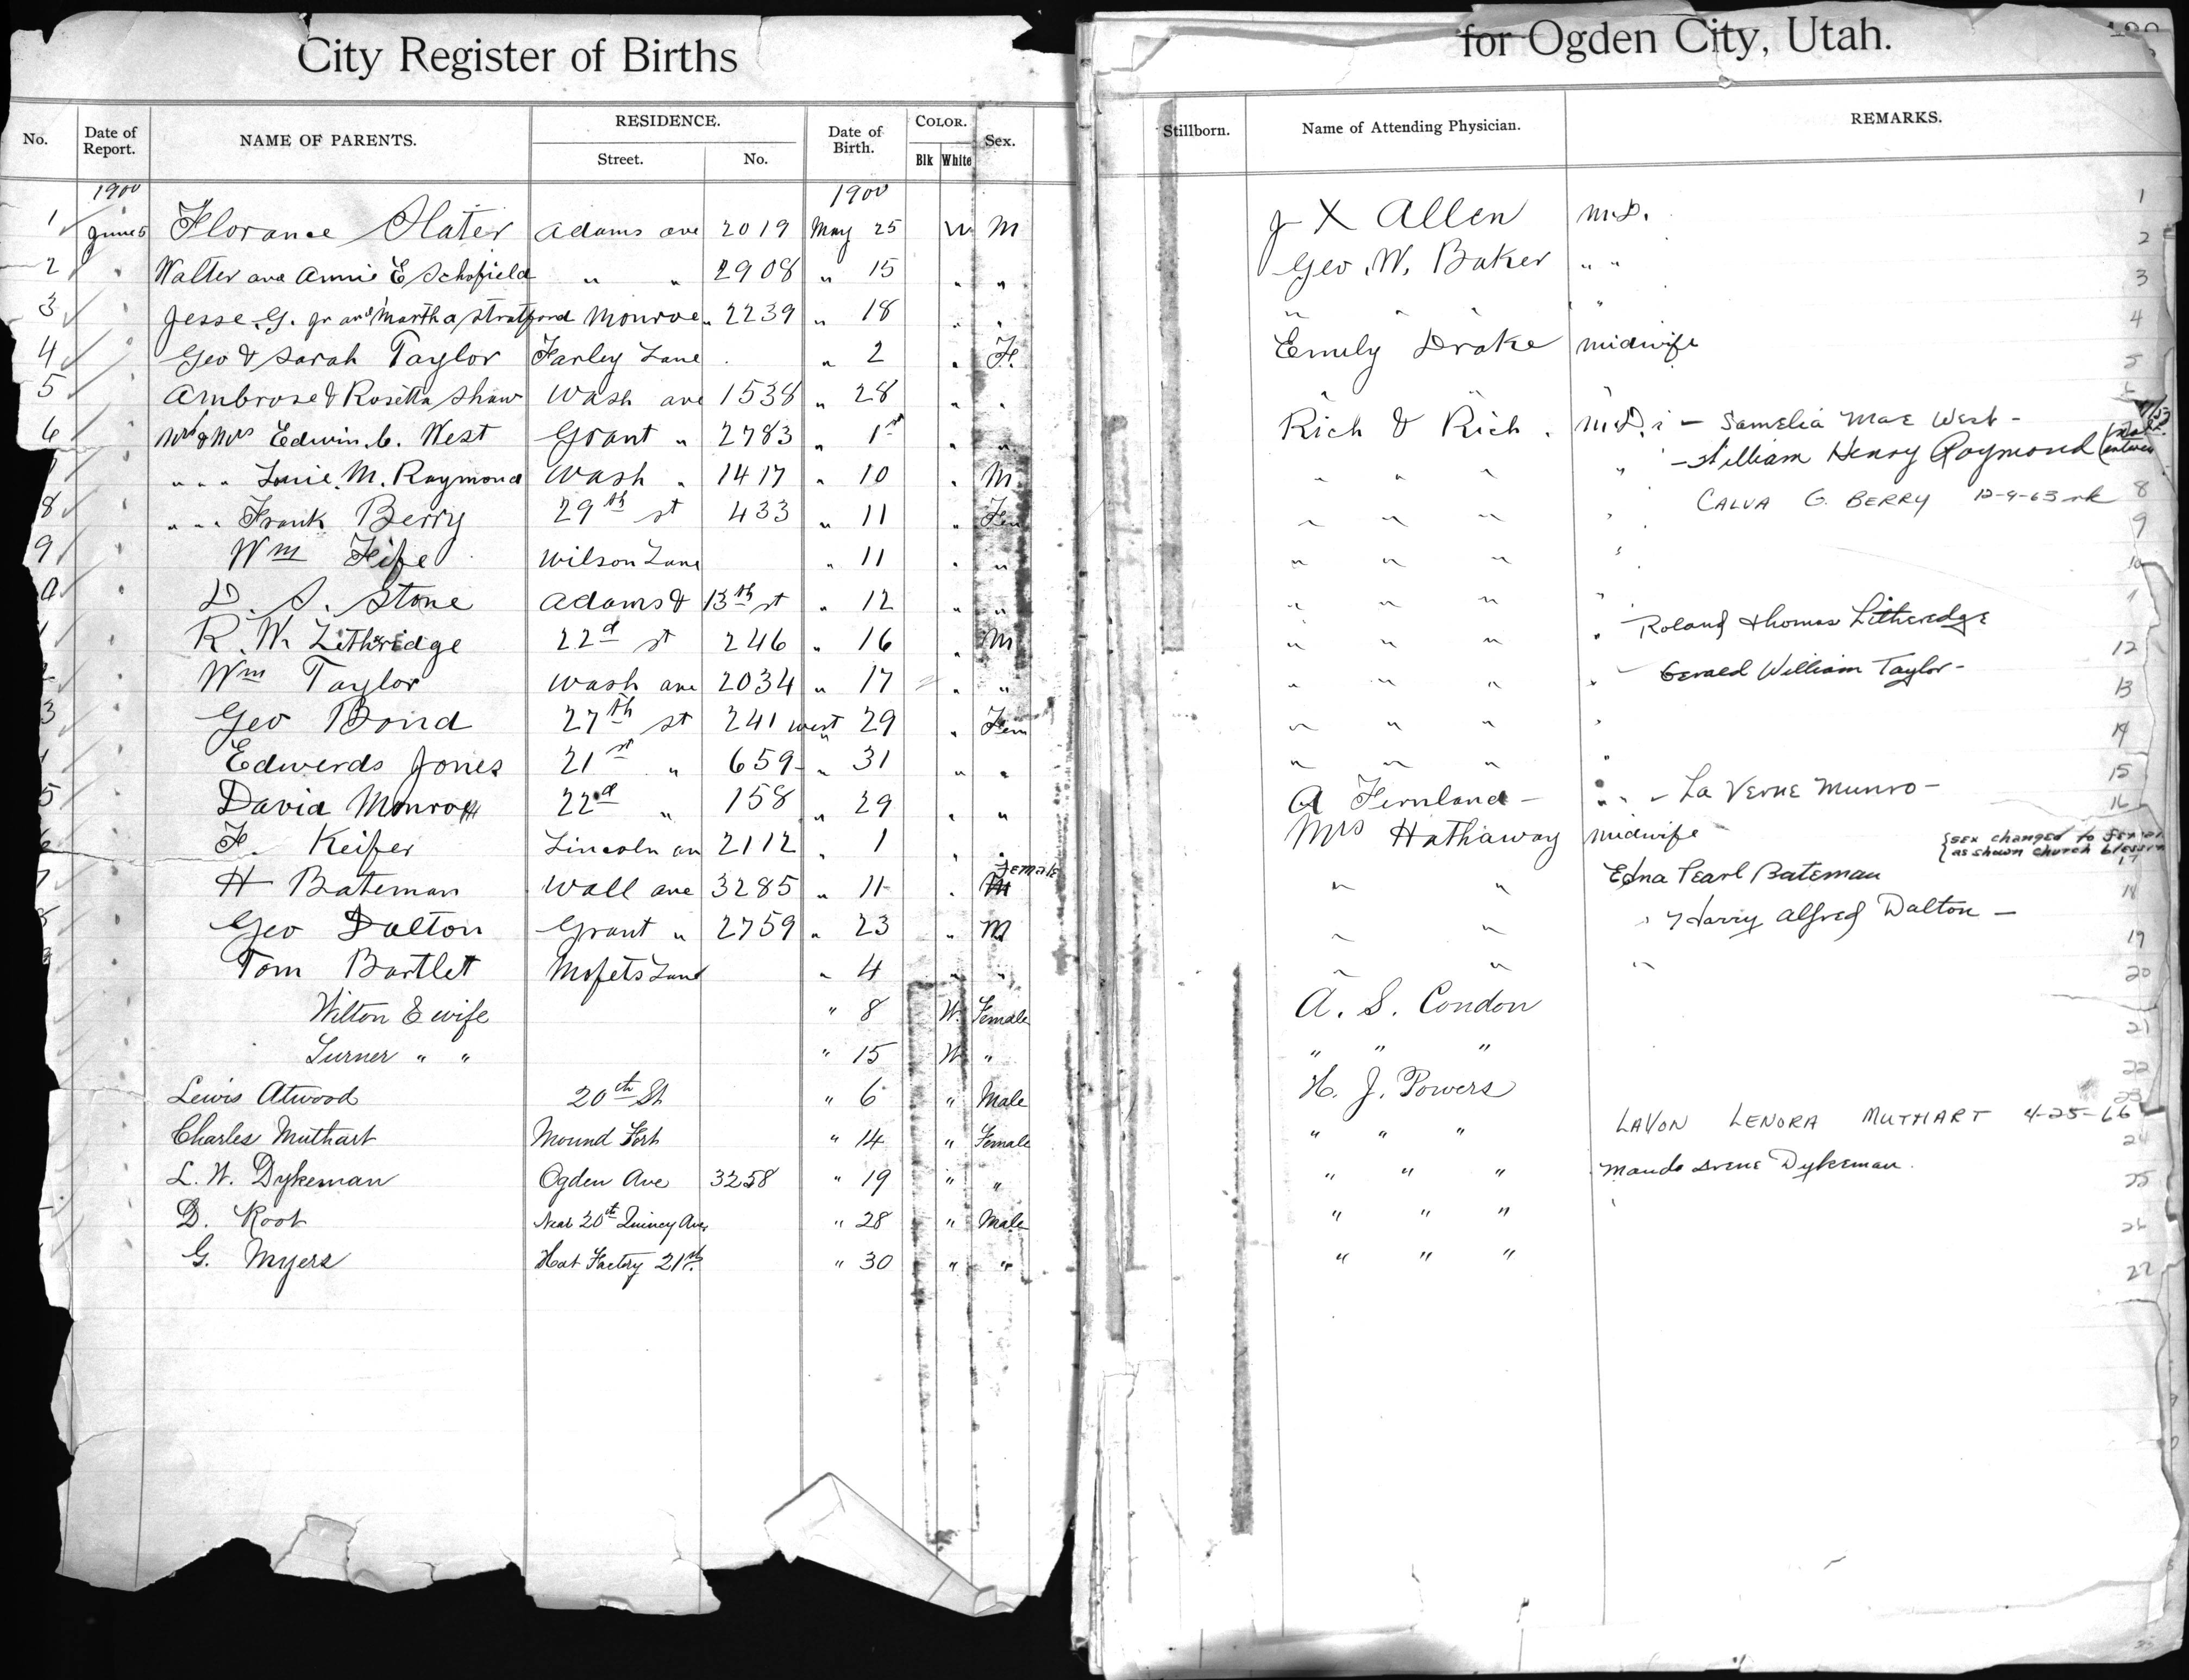 City Register of Births
for Ogden City, Utah.
No. Date of Report. NAME OF PARENTS. RESIDENCE. Street. No. Date of Birth. COLOR. Blk White Sex. Stillborn. Name of Attending Physician. REMARKS.
1900 1900
1 June 5 Florance Slater Adams ave 2019 May 25 W M J X Allen M.D. 1
2 " Walter and Annie E Schofield " " 2908 " 15 " " Geo. W. Baker " " 2
3 " Jesse. G. Jr and Martha Stratford Monroe " 2239 " 18 " " " " " " 3
4 " Geo & Sarah Taylor Farley Lane " 2 " F. Emily Drake midwife 4
5 " Ambrose & Rosetta Shaw Wash ave 1538 " 28 " " " " 5
6 " Mr & Mrs Edwin. C. West Grant " 2783 " 1st " " Rich & Rich. M.D. - Samelia Mae West -
" " " " M. Raymond Wash " 1417 " 10 " M " " " " - William Henry Raymond
8 " " " " Frank Berry 29th st 433 " 11 " Fem " " " " CALVA G. BERRY 12-9-63 8
9 " Wm Fife Wilson Lane " 11 " " " " " " 9
" D. S. Stone Adams & 13th st " 12 " " " " " " 10
" R. W. Lithridge 22d st 246 " 16 " M " " " " Roland Thomas Litheredge
" Wm Taylor Wash ave 2034 " 17 " " " " " " Gerald William Taylor - 12
3 " Geo Bond 27th st 241 west " 29 " Fem " " " " 13
" Edwerds Jones 21st " 659 " 31 " " " " " " 14
5 " David Monroe 22d " 158 " 29 " " A Fernland - " " - La Verne Munro - 15
" F. Keifer Lincoln av 2112 " 1 " " Mrs Hathaway midwife 16
{sex changed to
as shown church
7 " H Bateman Wall ave 3285 " 11 " M Female " " Edna Pearl Bateman 17
8 " Geo Dalton Grant " 2759 " 23 " M " " " Harry Alfred Dalton - 18
" Tom Bartlet Mofets Lane " 4 " " " " " 19
" Wilton & wife " 8 W. Female A. S. Condon 20
" Turner " " " 15 W " " " " 21
" Lewis Atwood 20th St " 6 " Male H. J. Powers 22
" Charles Muthart Mound Fort " 14 " Female " " " LAVON LENORA MUTHART 4-25-66 23
" L. W. Dykeman Ogden Ave 3258 " 19 " " " " " Maude Irene Dykeman. 24
" D. Root Near 20th Quincy Ave " 28 " Male " " " 25
" G. Myers Hat Factory 21st. " 30 " " " " " 26
27